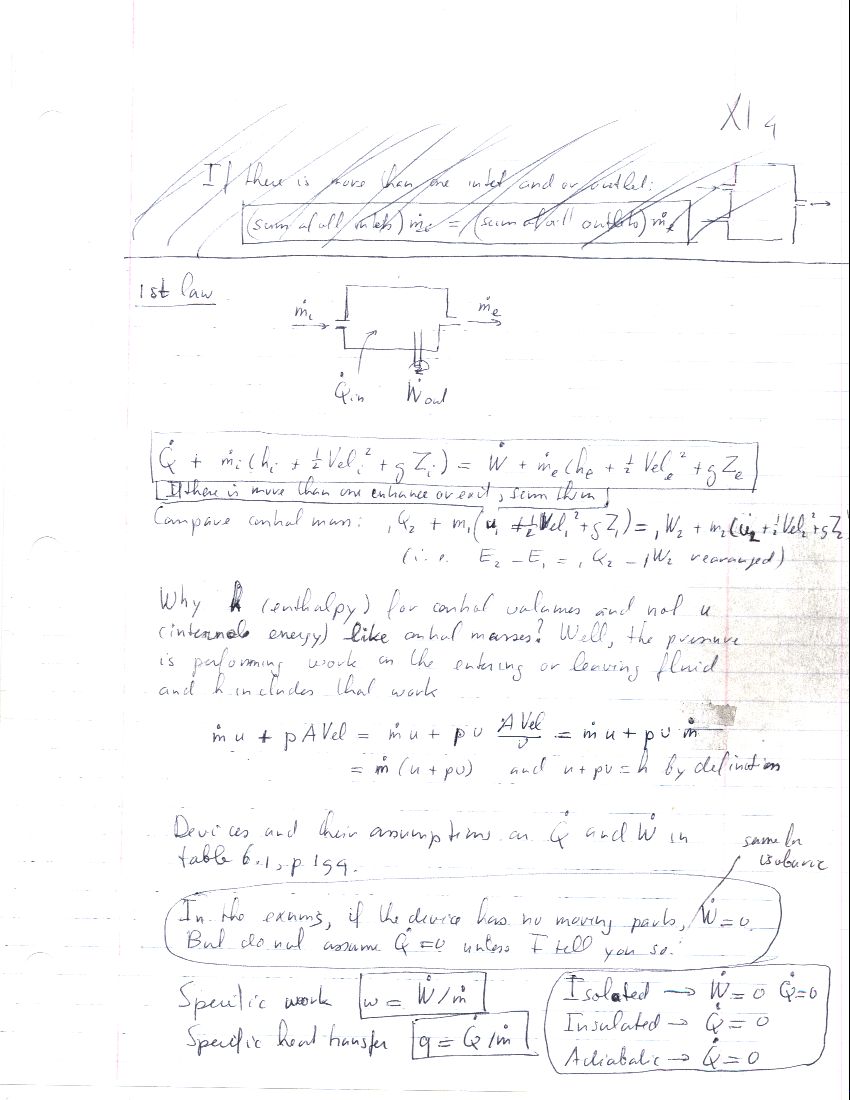 XI 4
If there is more than one inlet and or outlet:
(sum of all inlets) ṁe = (sum of all outlets) ṁe
1st law
ṁi ṁe
Q̇in Ẇout
Q̇ + ṁi (hi + ½ Veli² + g Zi) = Ẇ + ṁe (he + ½ Vele² + g Ze
If there is more than one enhance or exit, sum them
Compare conhal mass: ₁Q₂ + m₁(u₁ + ½ Vel₁² + g Z₁) = ₁W₂ + m₂(u₂ + ½ Vel₂² + g Z₂
(i.e. E₂ – E₁ = ₁Q₂ – ₁W₂ rearanged)
Why h (enthalpy) for conhal valumes and not u
(internal energy) like conhal masses? Well, the pressure
is performing work on the entering or leaving fluid
and h includes that work
ṁ u + p A Vel = ṁ u + p v A Vel/v = ṁ u + p v ṁ
= ṁ (u + pv) and u + pv = h by definition
Devices and their assumptions on Q̇ and Ẇ in
table 6.1, p 199.
same for
isobaric
In the exams, if the device has no moving parts, Ẇ = 0.
But do not assume Q̇ = 0 unless I tell you so.
Specific work w = Ẇ/ṁ
Specific heat transfer q = Q̇/ṁ
Isolated → Ẇ = 0 Q̇ = 0
Insulated → Q̇ = 0
Adiabatic → Q̇ = 0